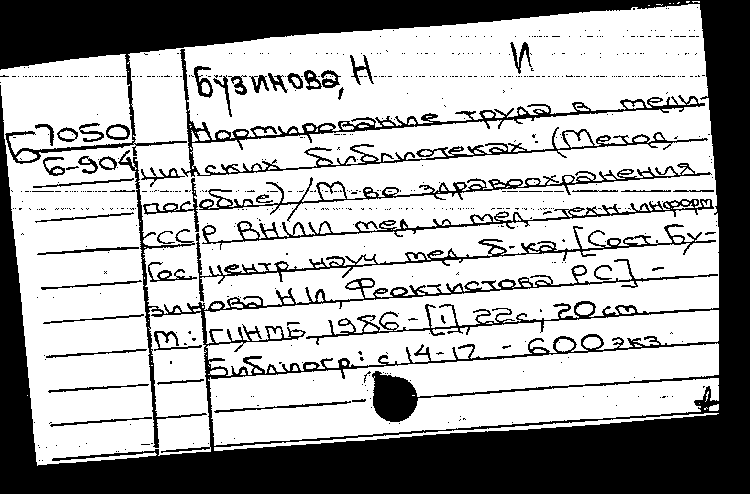 Бузинова, Н И
Б 7050
Б-904
Нормирование труда в меди-
цинских библиотеках: (Метод.
пособие) / М-во здравоохранения
СССР, ВНИИ мед. и мед.-техн. информ.,
Гос. центр. науч. мед. б-ка; [Сост. Бу-
зинова Н.И., Феоктистова Р.С.] -
М.: ГЦНМБ, 1986.- [1], 22с.; 20 см.
Библиогр.: с. 14-17 - 600 экз.